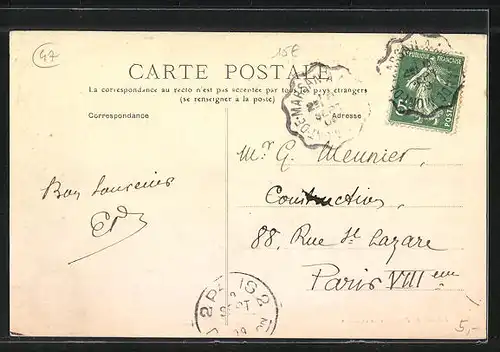 47
15€
CARTE POSTALE
La correspondance au recto n'est pas acceptée par tous les pays étrangers
(se renseigner à la poste)
Correspondance
Adresse
REPUBLIQUE FRANÇAISE
5c
POSTES
Mr. G. Meunier,
Bon Souvenir
Construction,
88, Rue St Lazare
Paris VIII eme
2 PARIS 2
2
SEPT
5,-